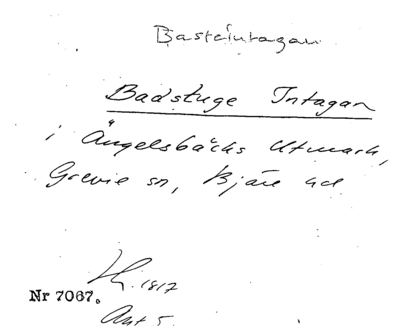 Basteintagan
Badstuge Intagan
i Ängelsbäcks Utmark,
Grevie sn, Bjäre hd
1817
Nr 7067.
Akt 5.